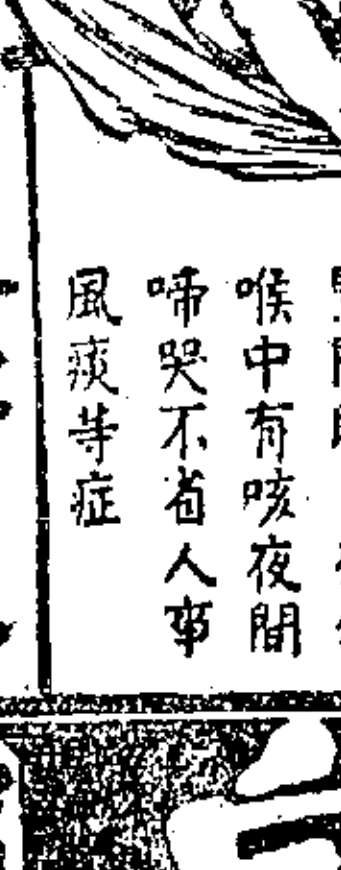 喉中有咳夜間
啼哭不省人事
風痰等症